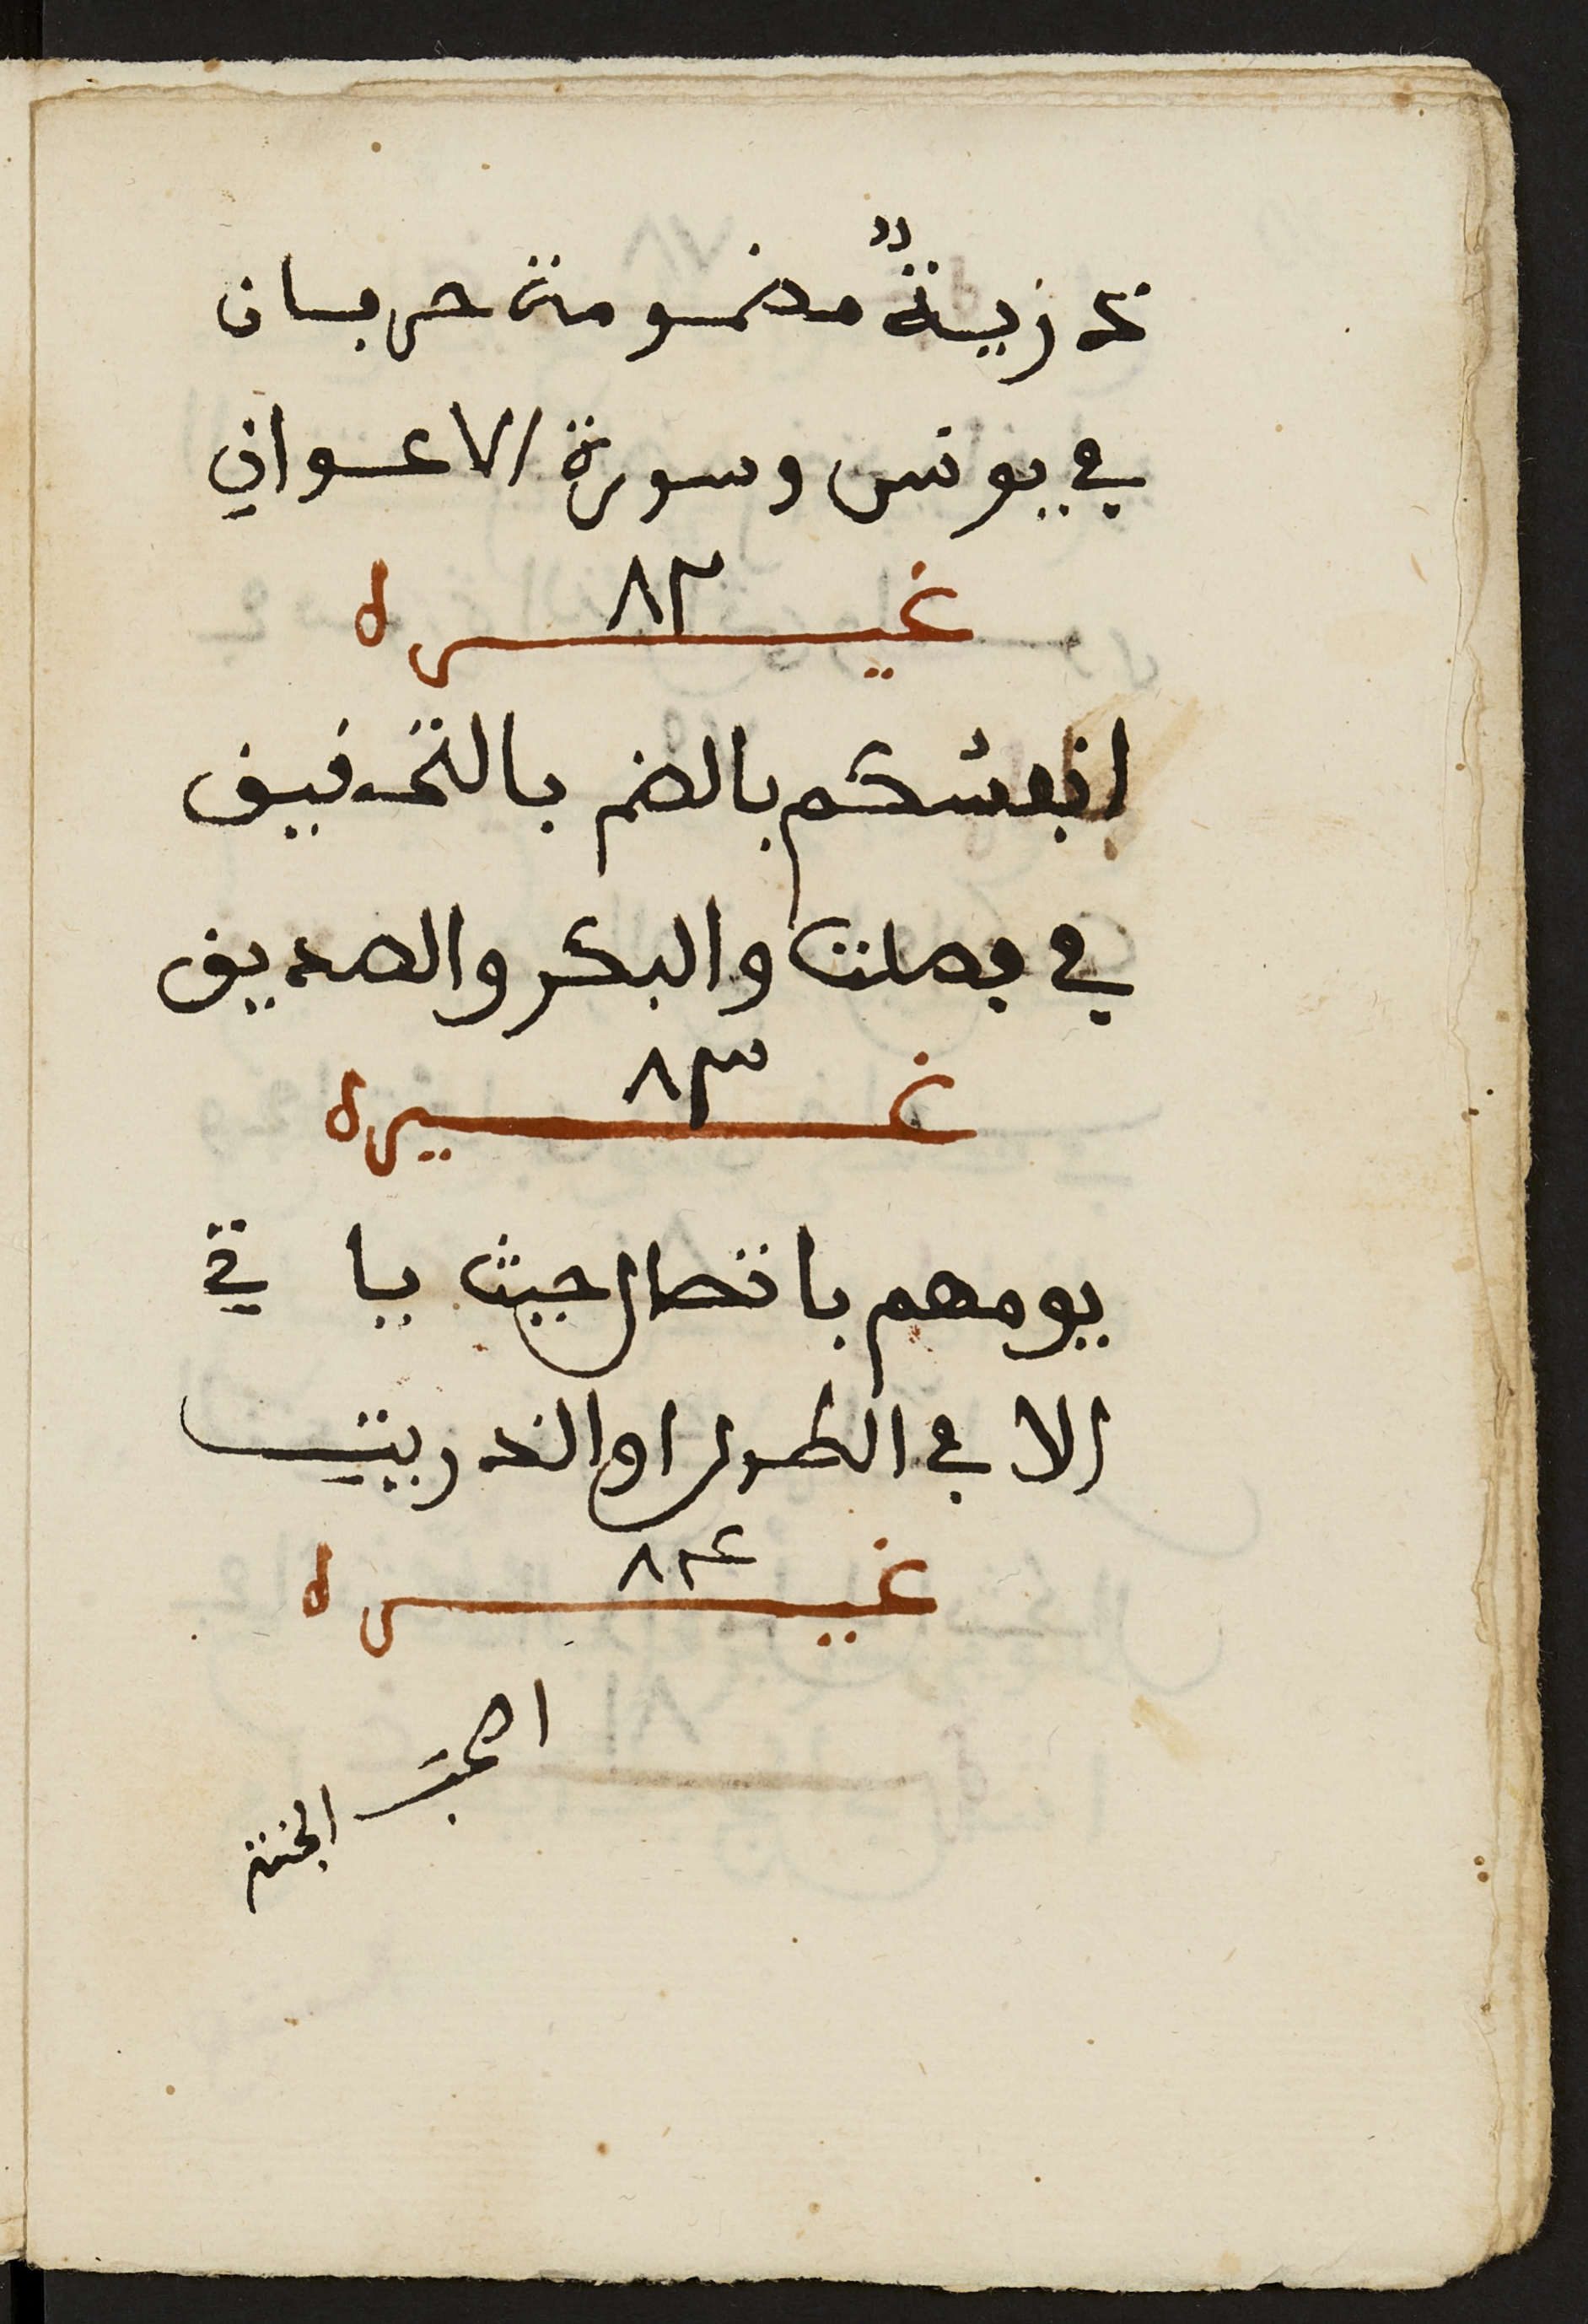 ذرية مضمومة حرفان
في يونس وسورة الاعراف
غيره ٨٢
انفسكم بالضم بالتحقيق
في فصلت والبكر والصديق
غيره ٨٣
يومهم باتصال حيث يا تي
الا في الطول او الذريت
غيره ٨٤
اصحب
الجنة